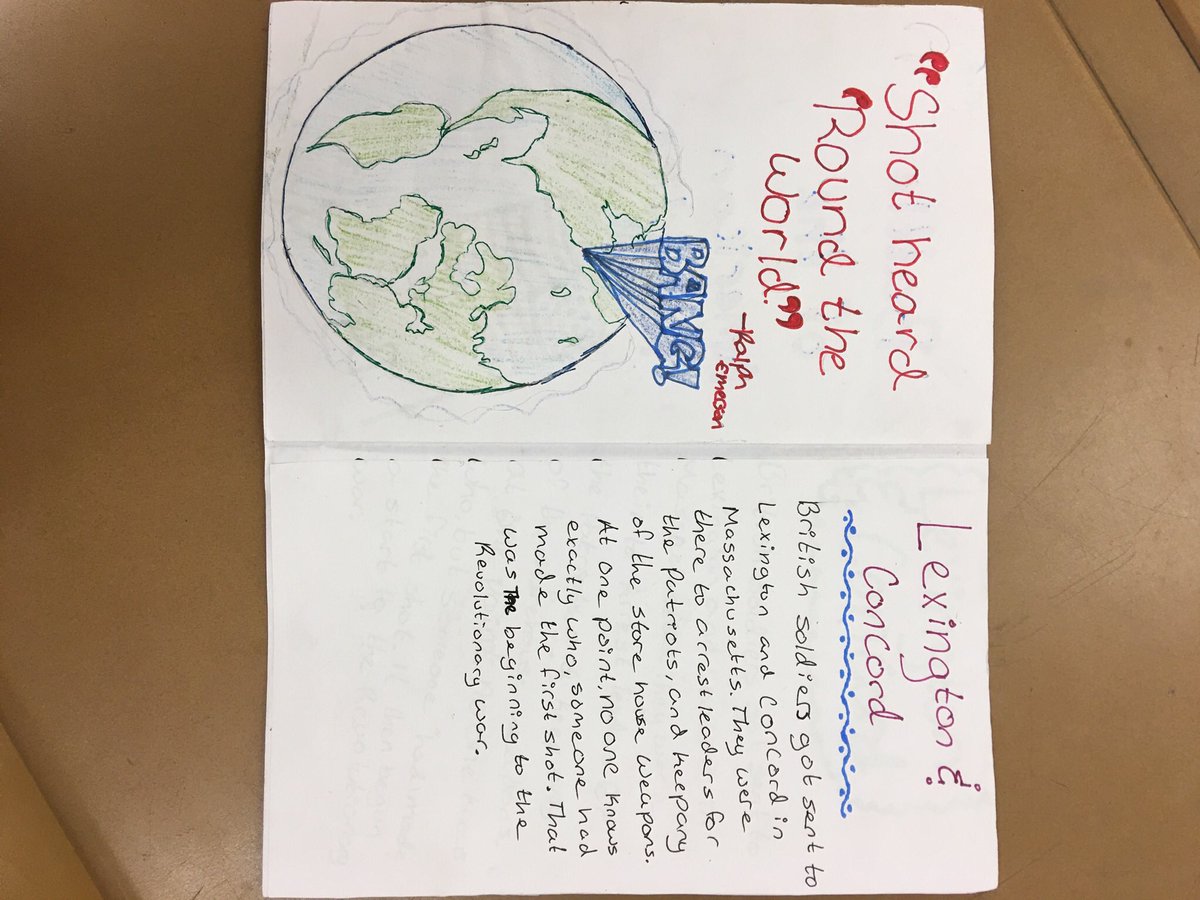 "Shot heard
"Round the
World."
-Ralph
Emerson
BANG!
Lexington &
Concord
British soldiers got sent to
Lexington and Concord in
Massachusetts. They were
there to arrest leaders for
the patriots, and keep any
of the store house weapons.
At one point, no one knows
exactly who, someone had
made the first shot. That
was The beginning to the
Revolutionary war.